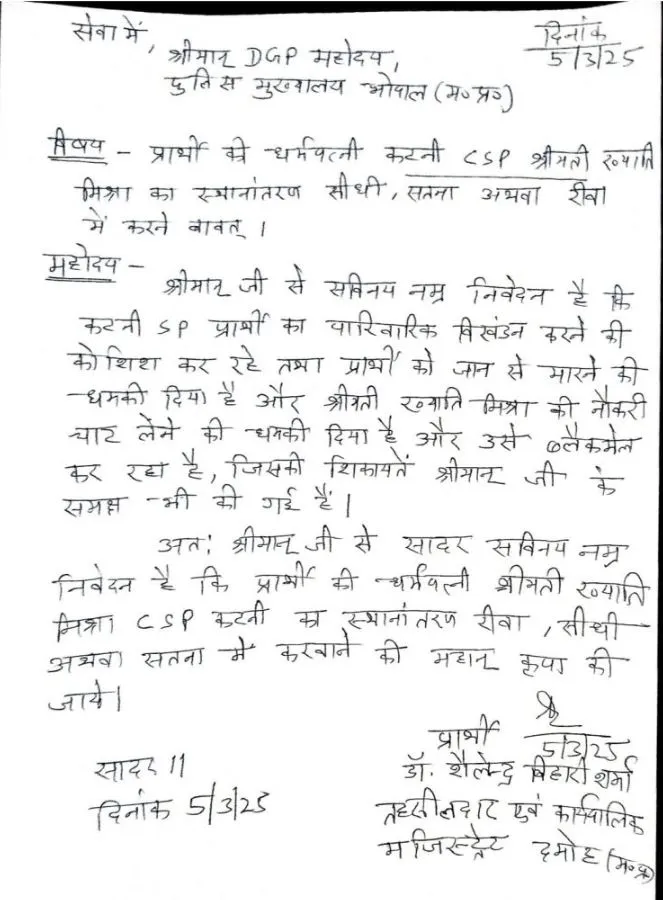 सेवा में,
दिनांक
5/3/25
श्रीमान् DGP महोदय,
पुलिस मुख्यालय भोपाल (म०प्र०)
विषय - प्रार्थी की धर्मपत्नी कटनी CSP श्रीमती ख्याति
मिश्रा का स्थानांतरण सीधी, सतना अथवा रीवा
में करने बावत् ।
महोदय -
श्रीमान् जी से सविनय नम्र निवेदन है कि
कटनी SP प्रार्थी का पारिवारिक विखंडन करने की
कोशिश कर रहे तथा प्रार्थी को जान से मारने की
धमकी दिया है और श्रीमती ख्याति मिश्रा की नौकरी
चाट लेने की धमकी दिया है और उसे ब्लैकमेल
कर रहा है, जिसकी शिकायतें श्रीमान् जी के
समक्ष भी की गई हैं ।
अतः श्रीमान् जी से सादर सविनय नम्र
निवेदन है कि प्रार्थी की धर्मपत्नी श्रीमती ख्याति
मिश्रा CSP कटनी का स्थानांतरण रीवा, सीधी
अथवा सतना में करवाने की महान् कृपा की
जाये।
प्रार्थी
5/3/25
सादर ।।
डॉ. शैलेन्द्र बिहारी शर्मा
दिनांक 5/3/25
तहसीलदार एवं कार्यपालिक
मजिस्ट्रेट दमोह (म०प्र०)